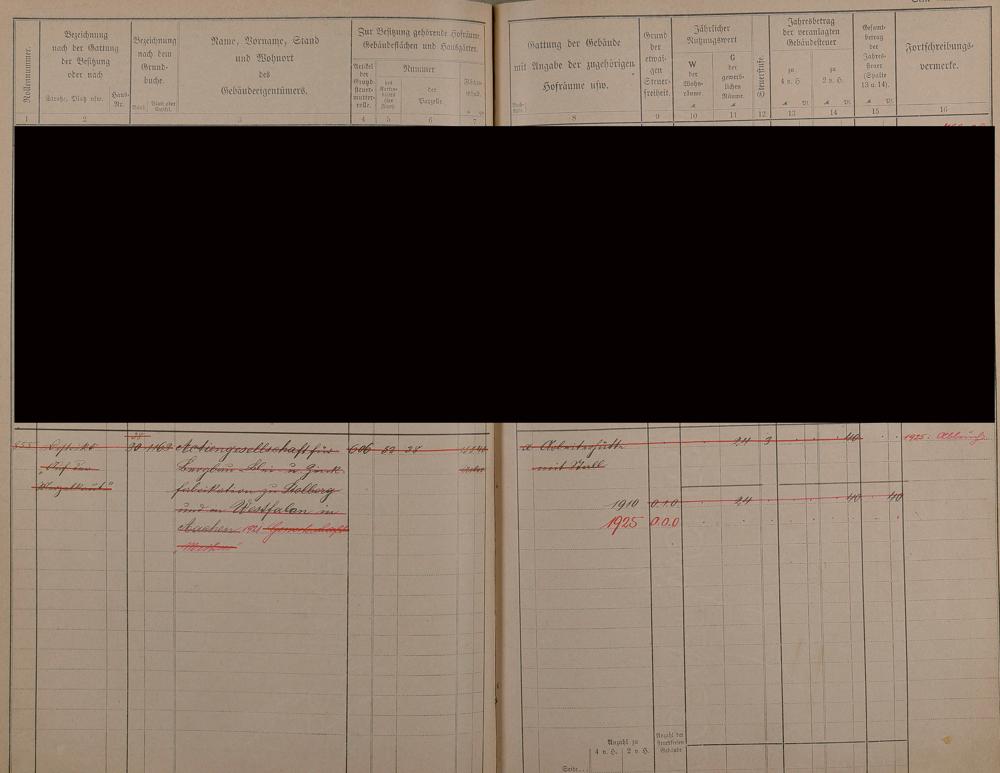 Rollennummer.
Bezeichnung
nach der Gattung
der Besitzung
oder nach
Straße, Platz usw.
Haus-
Nr.
Bezeichnung
nach dem
Grund-
buche.
Band. Blatt oder
Artikel.
Name, Vorname, Stand
und Wohnort
des
Gebäudeeigentümers.
Zur Besitzung gehörende Hofräume,
Gebäudeflächen und Hausgärten.
Artikel
der
Grund-
steuer-
mutter-
rolle.
Nummer
des
Karten-
blatts
(der
Flur).
der
Parzelle.
Flächen-
inhalt.
1 2 3 4 5 6 7
Gattung der Gebäude
mit Angabe der zugehörigen
Hofräume usw.
Grund
der
etwai-
gen
Steuer-
freiheit.
Jährlicher
Nutzungswert
W
der
Wohn-
räume.
G
der
gewerb-
lichen
Räume.
Steuerstufe.
Jahresbetrag
der veranlagten
Gebäudesteuer
zu
4 v. H.
zu
2 v. H.
Gesamt-
betrag
der
Jahres-
steuer
(Spalte
13 u. 14).
Fortschreibungs-
vermerke.
8 9 10 11 12 13 14 15 16
30 1162 Actiengesellschaft für 606 52
Bergbau Blei u Zink
fabrikation zu Stolberg
und in Westfalen in
Aachen 1921 Gewerkschaft
a Arbeitshütte 24 3 40
mit Stall
1925. Abbruch
1910 0.1.0 24 40 40
1925 0.0.0
Anzahl zu
4 v. H. 2 v. H.
Anzahl der
steuerfreien
Gebäude
Seite